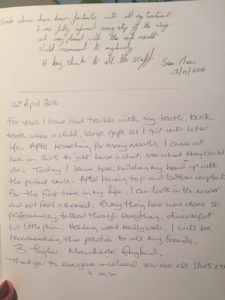 clinic have been fantastic with all my treatment
I was fully informed every step of the way
and very pleased with the end results
Would recommend to anybody
A big thanks to all the staff
Sean
13/4/2016
14th April 2016
For years I have had trouble with my teeth, buck
teeth when a child, large gaps as I got into later
life. After researching for many months I came out
here in 2015 to just have a chat, see what they could
do. Today I leave here, holding my head up with
the perfect smile. After having top and bottom implants
for the first time in my life, I can look in the mirror
and not feel ashamed. Everything here was done so
professionally, talked through everything, discomfort
but little pain. Healing went really well. I will be
recommending this practice to all my friends.
B. Taylor, Manchester England.
Thank you to everyone involved you are all STARS